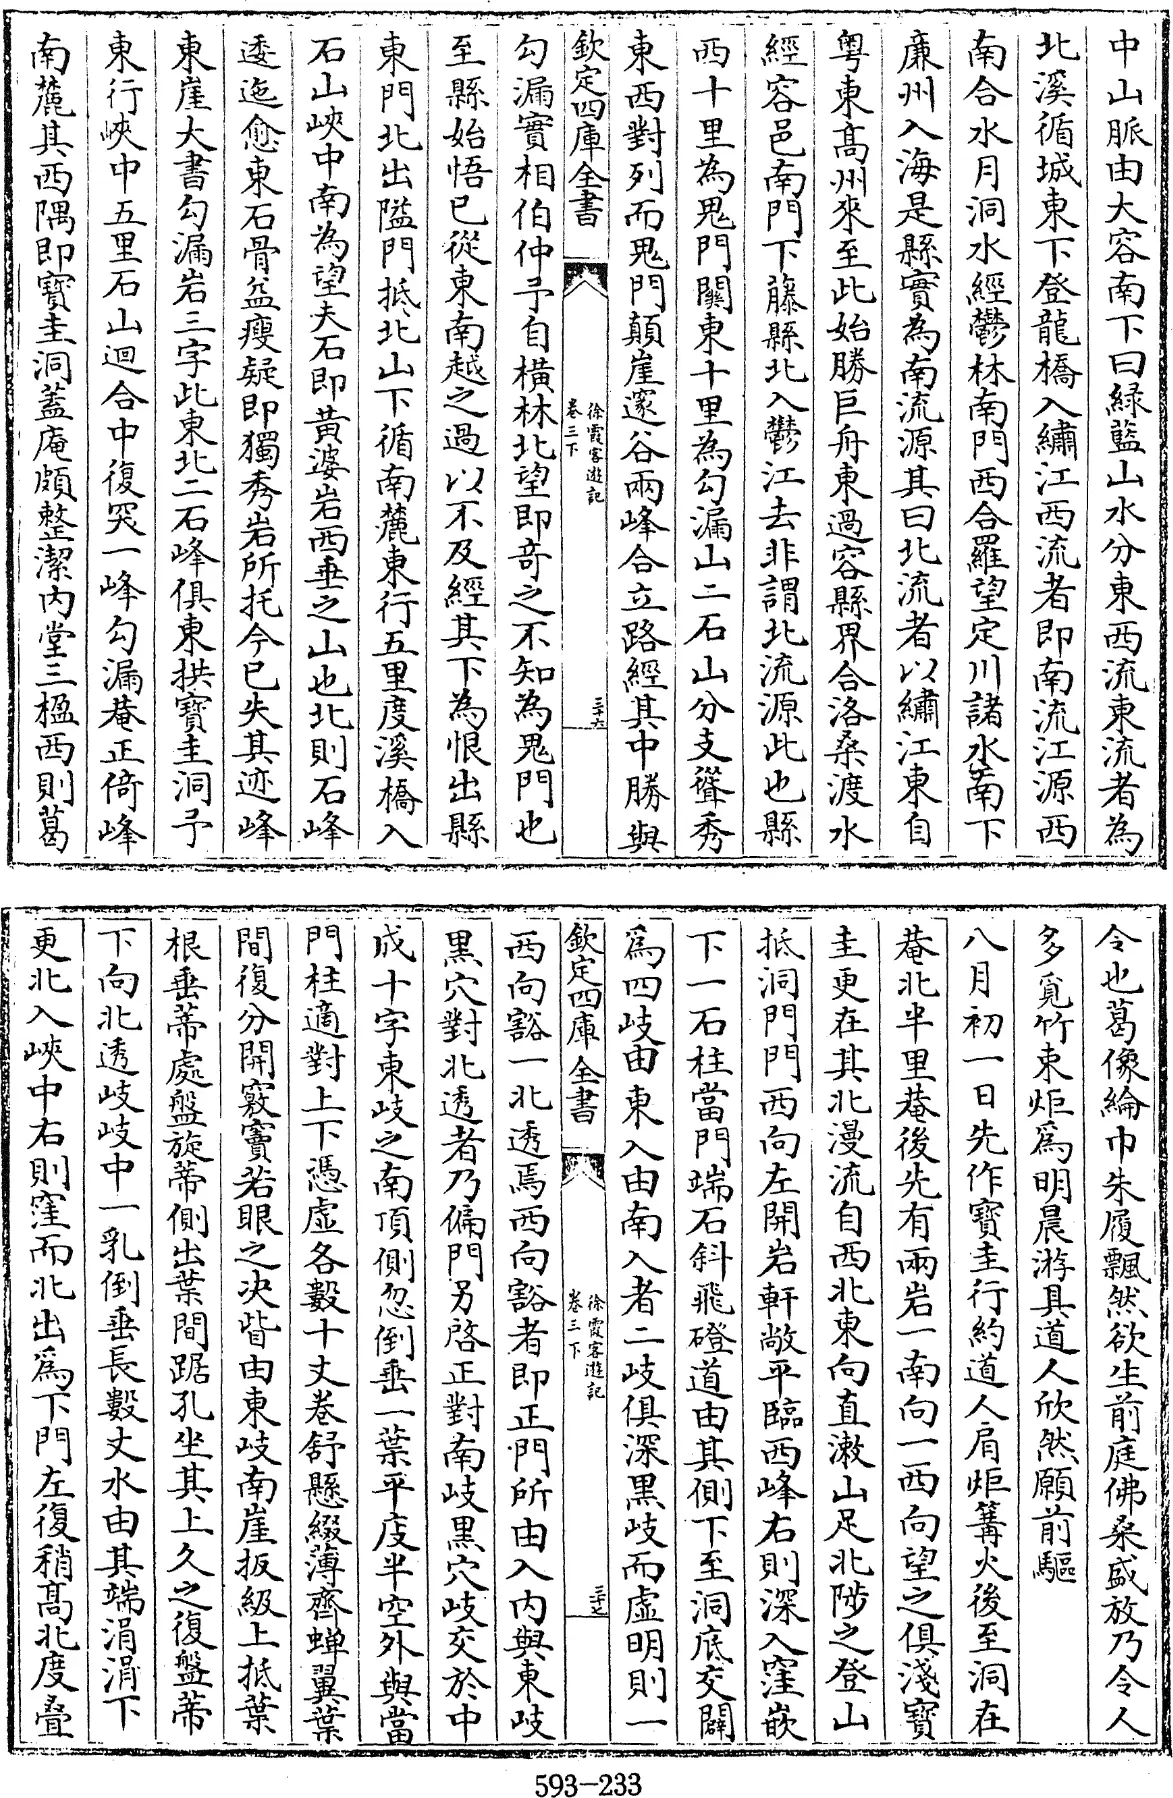 中山脈由大容南下曰緑藍山水分東西流東流者為
北溪循城東下登龍橋入繡江西流者即南流江源西
南合水月洞水經鬱林南門西合羅望定川諸水南下
廉州入海是縣實為南流源其曰北流者以繡江東自
粤東髙州來至此始勝巨舟東過容縣界合洛桑渡水
經容邑南門下藤縣北入鬱江去非謂北流源此也縣
西十里為鬼門關東十里為勾漏山二石山分支聳秀
東西對列而鬼門顛崖邃谷兩峰合立路經其中勝與
欽定四庫全書
徐霞客遊記
卷三下
三十六
勾漏實相伯仲予自横林北望即奇之不知為鬼門也
至縣始悟已從東南越之過以不及經其下為恨出縣
東門北出隘門抵北山下循南麓東行五里度溪橋入
石山峽中南為望夫石即黄婆岩西垂之山也北則石峰
逶迤愈東石骨益瘦疑即獨秀岩所托今已失其迹峰
東崖大書勾漏岩三字此東北二石峰俱東拱寶圭洞予
東行峽中五里石山迴合中復突一峰勾漏菴正倚峰
南麓其西隅即寶圭洞蓋庵頗整潔内堂三楹西則葛
令也葛像綸巾朱履飄然欲生前庭佛桑盛放乃令人
多覓竹束炬爲明晨游具道人欣然願前驅
八月初一日先作寶圭行約道人肩炬篝火後至洞在
菴北半里菴後先有兩岩一南向一西向望之俱淺寶
圭更在其北漫流自西北東向直漱山足北陟之登山
抵洞門門西向左開岩軒敞平臨西峰右則深入窪嵌
下一石柱當門端石斜飛磴道由其側下至洞底交闢
爲四岐由東入由南入者二岐俱深黒岐而虚明則一
欽定四庫全書
徐霞客遊記
卷三下
三十七
西向豁一北透焉西向豁者即正門所由入内與東岐
黒穴對北透者乃偏門另啓正對南岐黒穴岐交於中
成十字東岐之南頂側忽倒垂一葉平庋半空外與當
門柱適對上下憑虚各數十丈卷舒懸綴薄齊蟬翼葉
間復分開竅竇若眼之决眥由東岐南崖扳級上抵葉
根垂蒂處盤旋蒂側出葉間踞孔坐其上久之復盤蒂
下向北透岐岐中一乳倒垂長數丈水由其端涓涓下
更北入峽中右則窪而北出爲下門左復稍髙北度疊
593-233